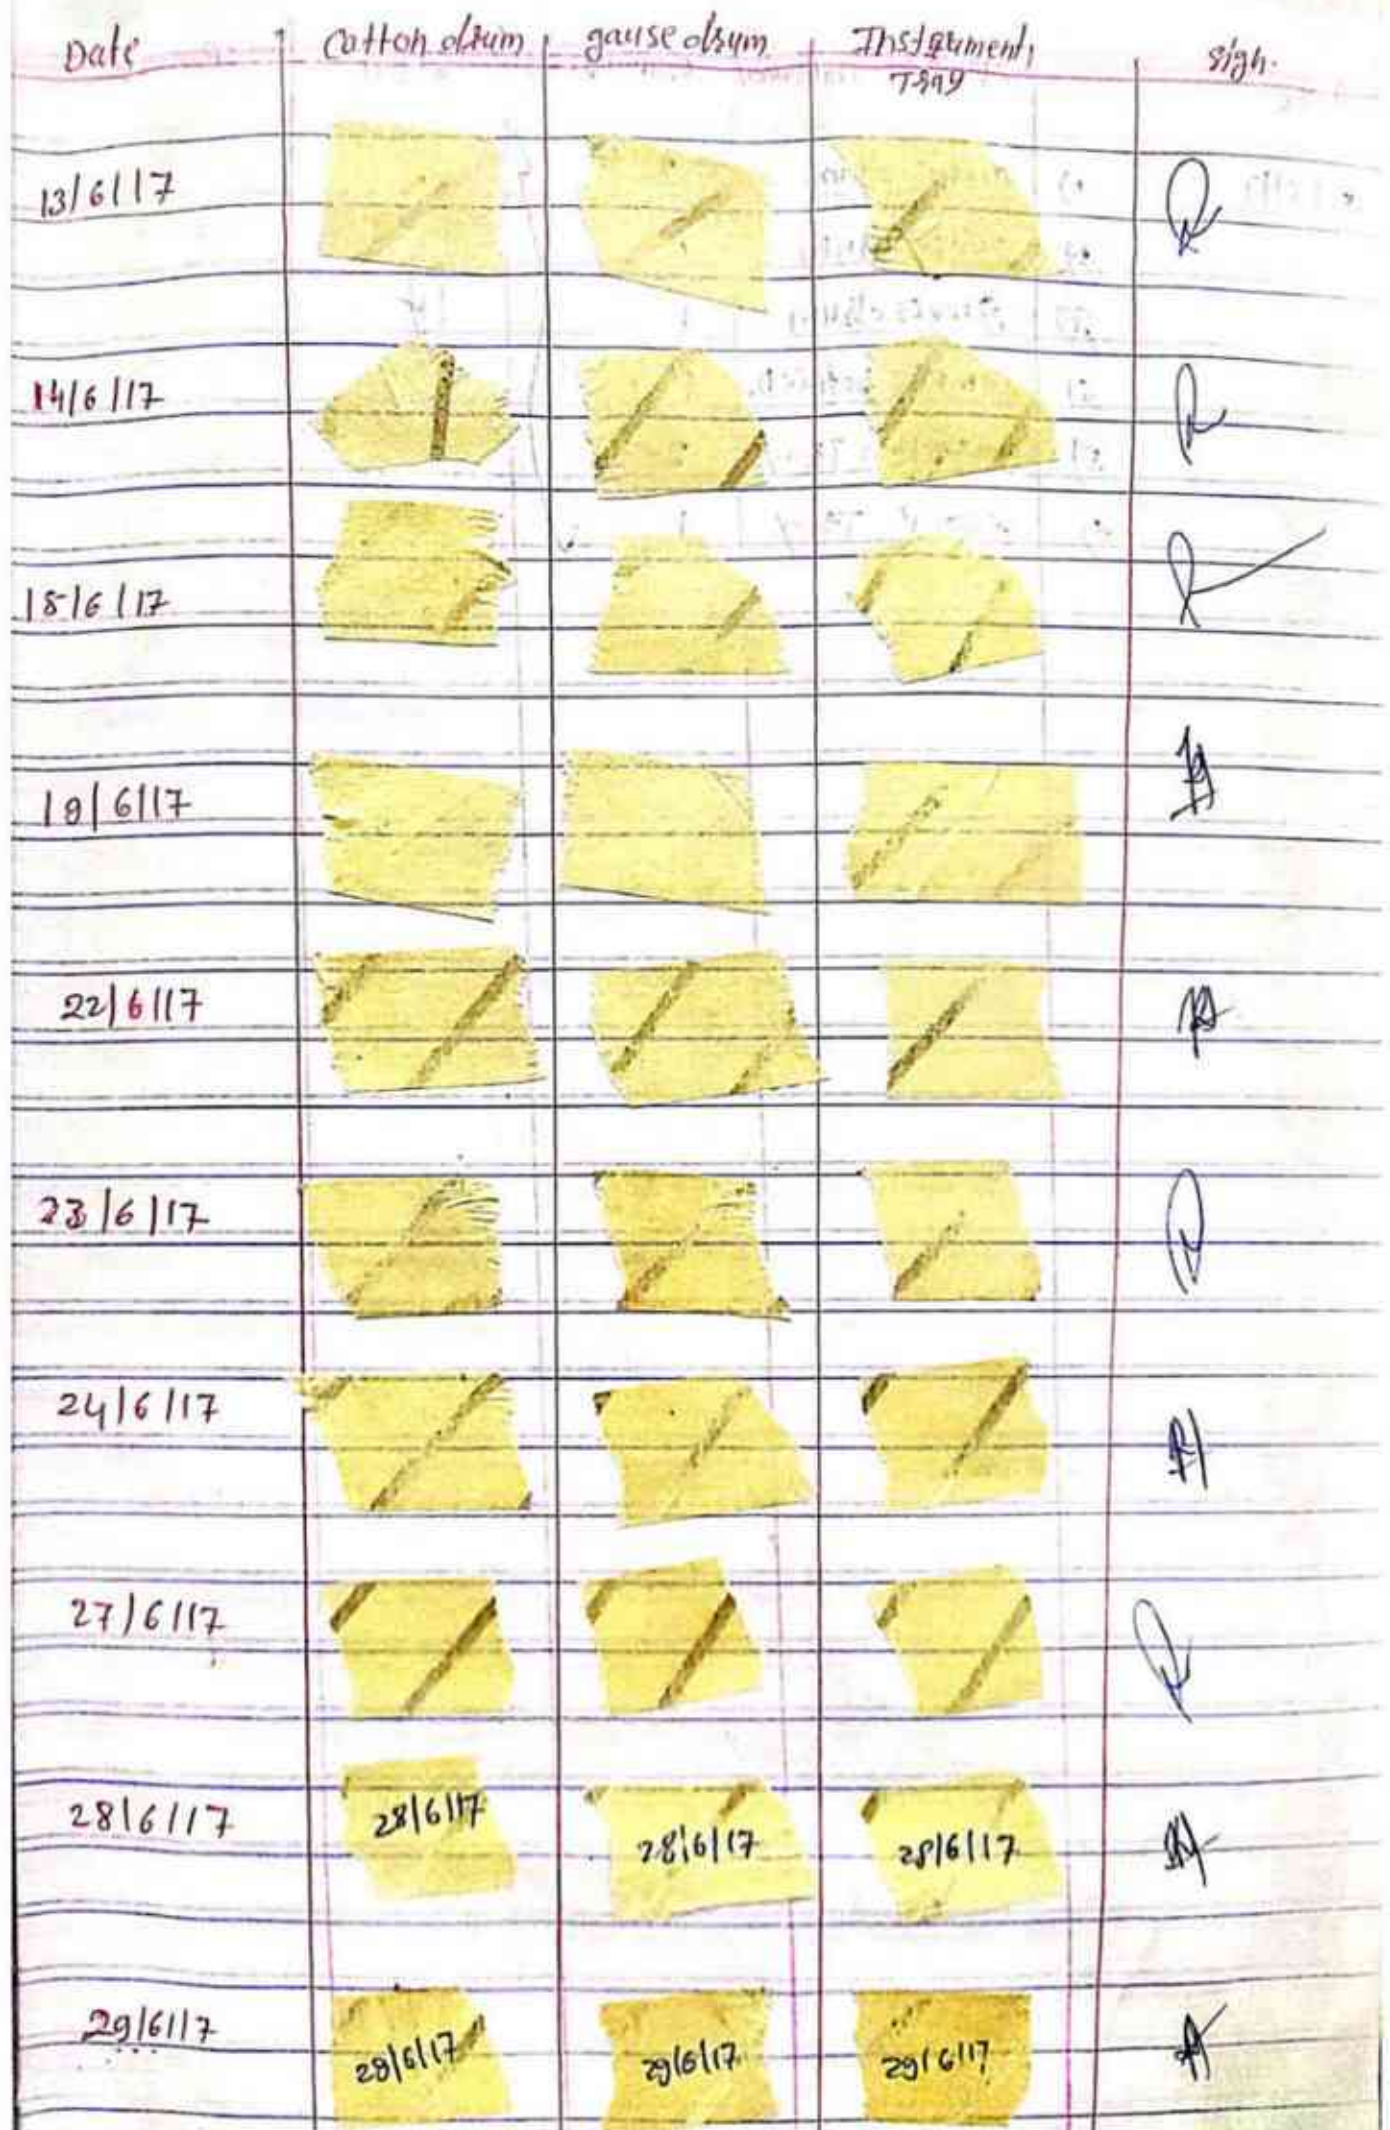 Date Cotton drum gause drum Instrument Tray Sign.
13/6/17
14/6/17
15/6/17
19/6/17
22/6/17
23/6/17
24/6/17
27/6/17
28/6/17 28/6/17 28/6/17 28/6/17
29/6/17 29/6/17 29/6/17 29/6/17